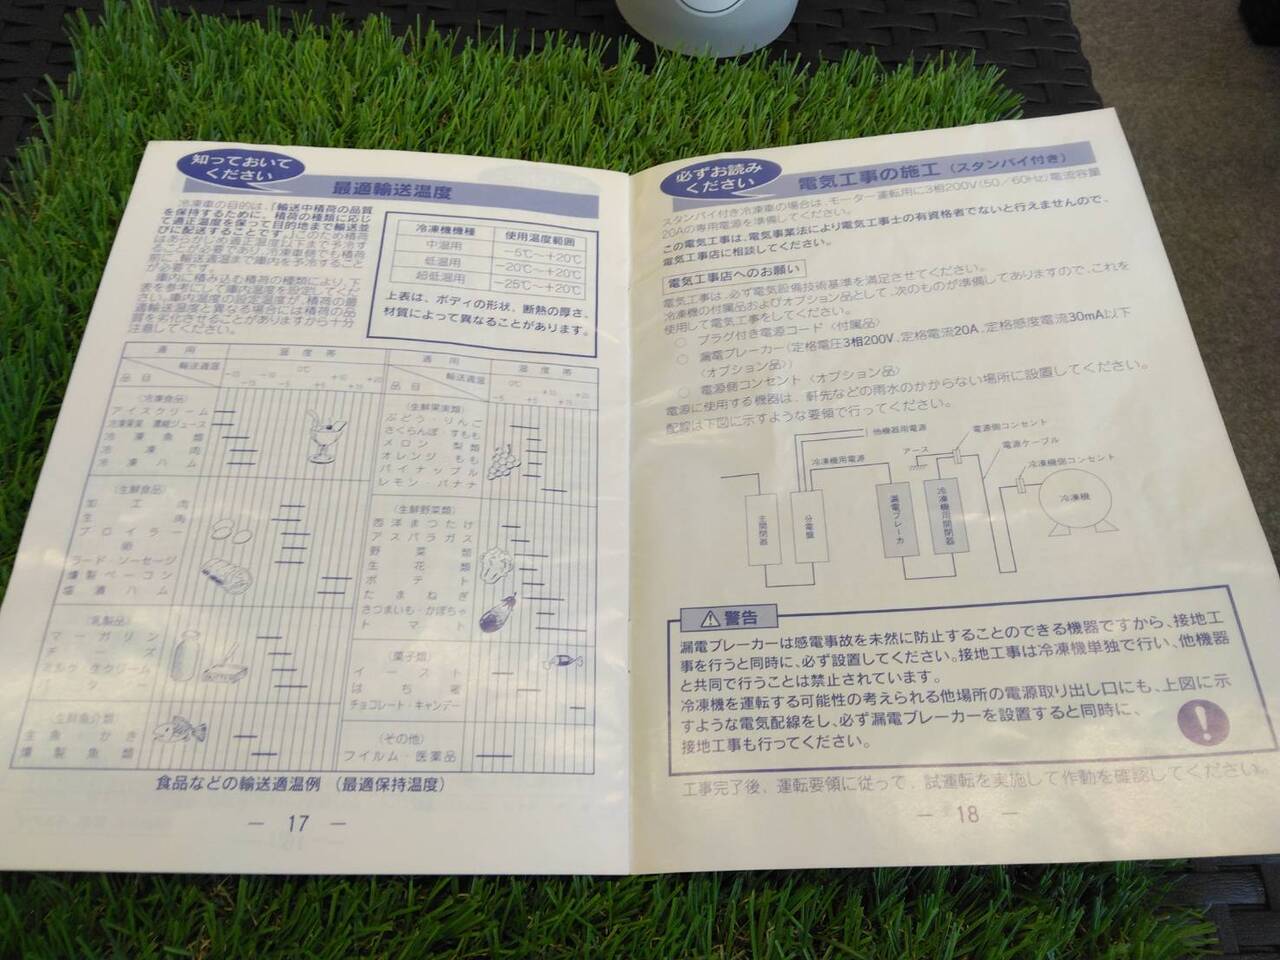 知っておいて
ください
最適輸送温度
冷凍車の目的は、「輸送中積荷の品質
を保持するために、積荷の種類に応じ
て適正温度を保って目的地まで輸送並
びに配送することです。」このため積荷
はあらかじめ適正温度以下まで予冷す
ることが必要であり、冷凍車側でも積荷
前に、輸送適温まで庫内を予冷すること
が必要です。
車内に積み込む積荷の種類により、下
表を参考にして庫内温度を設定してくだ
さい。庫内温度の設定温度が、積荷の最
適輸送温度と異なる場合には積荷の品
質を劣化させることがありますから十分
注意してください。
冷凍機機種 使用温度範囲
中温用 −5℃〜+20℃
低温用 −20℃〜+20℃
超低温用 −25℃〜+20℃
上表は、ボディの形状、断熱の厚さ、
材質によって異なることがあります。
適用 温度帯
輸送適温
品目
−20 −15 −10 −5 0℃ +5 +10 +15 +20
(冷凍食品)
アイスクリーム
冷凍果菜 濃縮ジュース
冷凍魚類
冷凍肉
冷凍ハム
(生鮮食品)
加工肉
生肉
ブロイラー
卵
ラード・ソーセージ
燻製ベーコン
塩漬ハム
(乳製品)
マーガリン
チーズ
ミルク 生クリーム
バター
(生鮮魚介類)
生魚 かき
燻製魚類
適用 温度帯
輸送適温
品目
−5 0℃ +5 +10 +15 +20
(生鮮果実類)
ぶどう・りんご
さくらんぼ・すもも
メロン 梨類
オレンジ・もも
パイナップル
レモン・バナナ
(生鮮野菜類)
西洋まつたけ
アスパラガス
野菜類
生花類
ポテト
たまねぎ
さつまいも・かぼちゃ
トマト
(菓子類)
イースト
はち蜜
チョコレート・キャンデー
(その他)
フイルム・医薬品
食品などの輸送適温例 (最適保持温度)
− 17 −
必ずお読み
ください
電気工事の施工 (スタンバイ付き)
スタンバイ付き冷凍車の場合は、モーター運転用に3相200V(50/60Hz)電流容量
20Aの専用電源を準備してください。
この電気工事は、電気事業法により電気工事士の有資格者でないと行えませんので、
電気工事店に相談してください。
電気工事店へのお願い
電気工事は、必ず電気設備技術基準を満足させてください。
冷凍機の付属品およびオプション品として、次のものが準備してありますので、これを
使用して電気工事をしてください。
○ プラグ付き電源コード〈付属品〉
○ 漏電ブレーカー(定格電圧3相200V、定格電流20A、定格感度電流30mA以下
〈オプション品〉)
○ 電源側コンセント〈オプション品〉
電源に使用する機器は、軒先などの雨水のかからない場所に設置してください。
配線は下図に示すような要領で行ってください。
他機器用電源
冷凍機用電源
アース
電源側コンセント
電源ケーブル
冷凍機側コンセント
主開閉器
分電盤
漏電ブレーカ
冷凍機用開閉器
冷凍機
警告
漏電ブレーカーは感電事故を未然に防止することのできる機器ですから、接地工
事を行うと同時に、必ず設置してください。接地工事は冷凍機単独で行い、他機器
と共同で行うことは禁止されています。
冷凍機を運転する可能性の考えられる他場所の電源取り出し口にも、上図に示
すような電気配線をし、必ず漏電ブレーカーを設置すると同時に、
接地工事も行ってください。
工事完了後、運転要領に従って、試運転を実施して作動を確認してください。
− 18 −